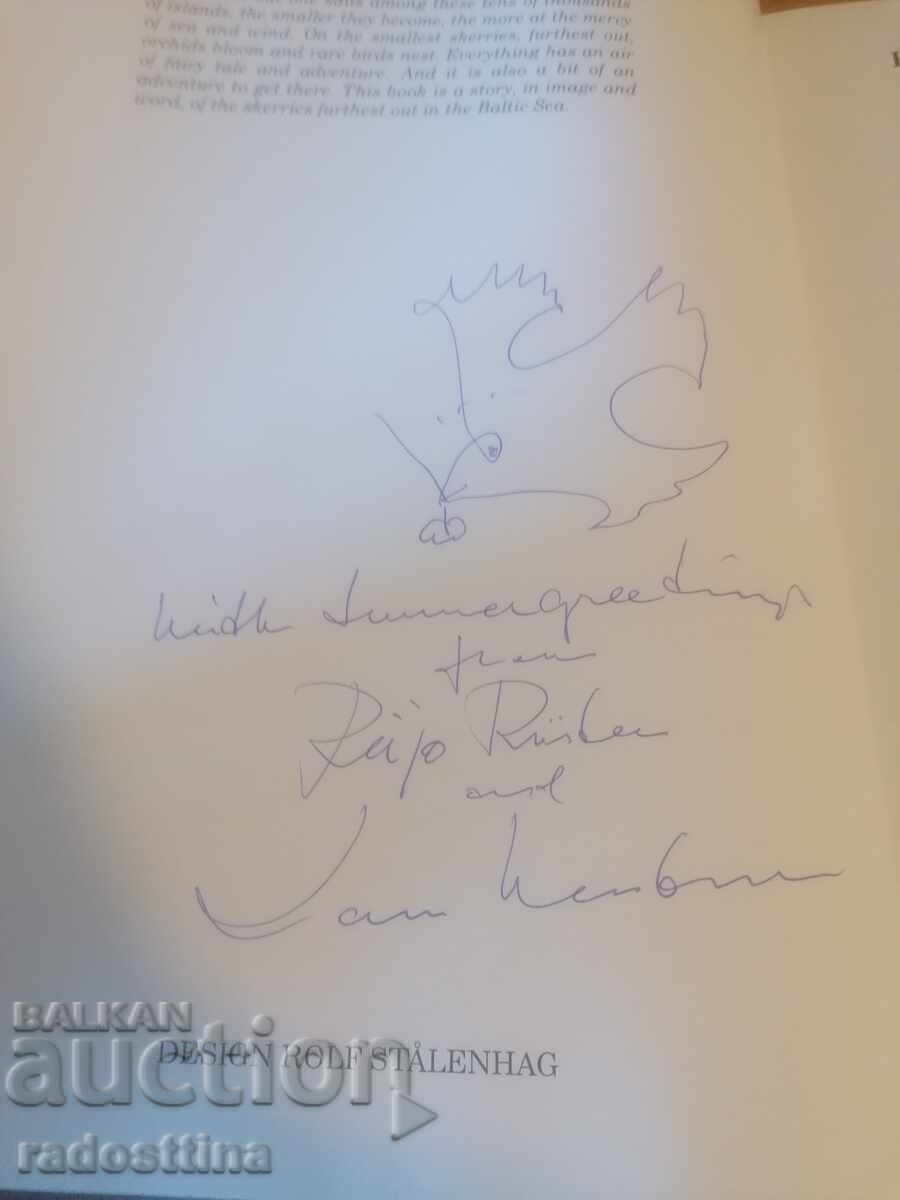 of islands, the smaller they become, the more at the mercy
of sea and wind. On the smallest skerries, furthest out,
orchids bloom and rare birds nest. Everything has an air
of fairy tale and adventure. And it is also a bit of an
adventure to get there. This book is a story, in image and
word, of the skerries furthest out in the Baltic Sea.
with summergreetings
from
Reijo Rüster
and
Jan
DESIGN ROLF STÅLENHAG
BALKAN
auction
radosttina